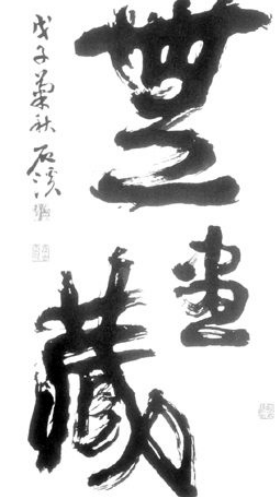 無盡藏
戊子菊秋 石溪